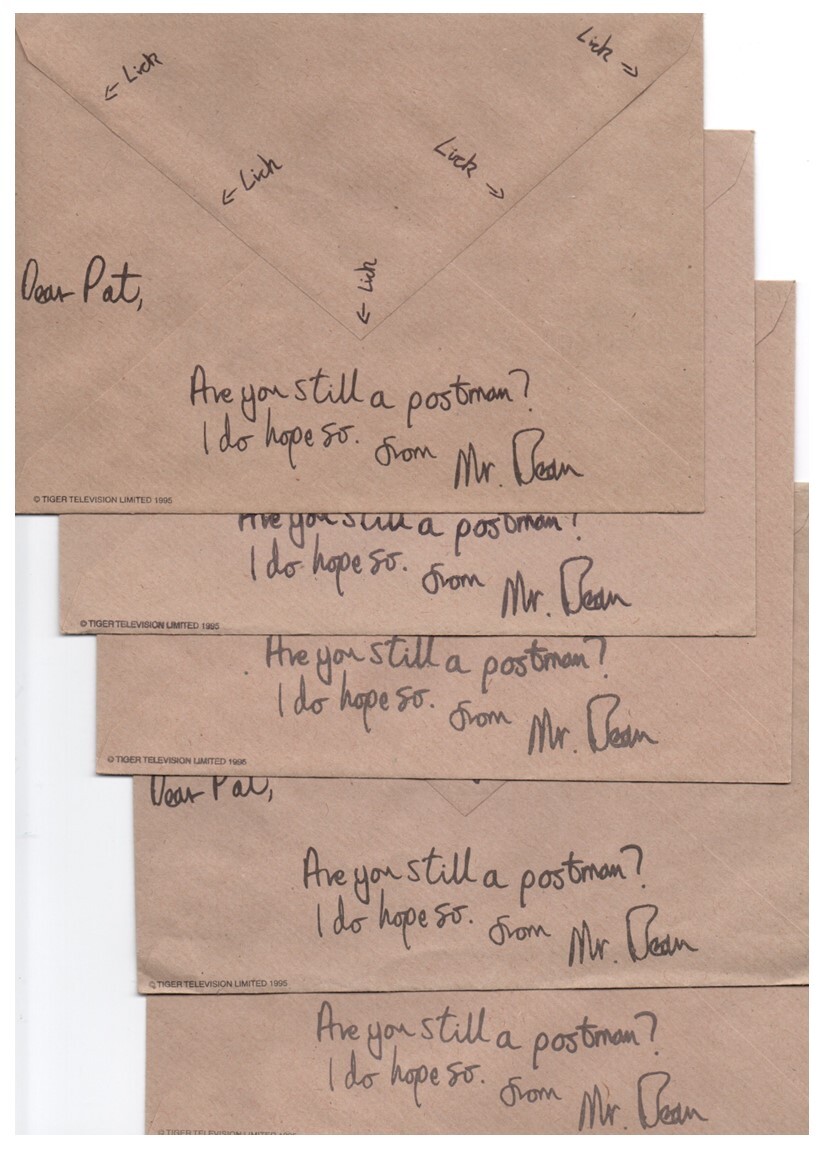 ← Lick
Lick →
← Lick
Lick →
← Lick
Dear Pat,
Are you still a postman?
I do hope so. from Mr. Bean
© TIGER TELEVISION LIMITED 1995
Are you still a postman?
I do hope so. from Mr. Bean
© TIGER TELEVISION LIMITED 1995
Are you still a postman?
I do hope so. from Mr. Bean
© TIGER TELEVISION LIMITED 1995
Dear Pat,
Are you still a postman?
I do hope so. from Mr. Bean
© TIGER TELEVISION LIMITED 1995
Are you still a postman?
I do hope so. from Mr. Bean
© TIGER TELEVISION LIMITED 1995